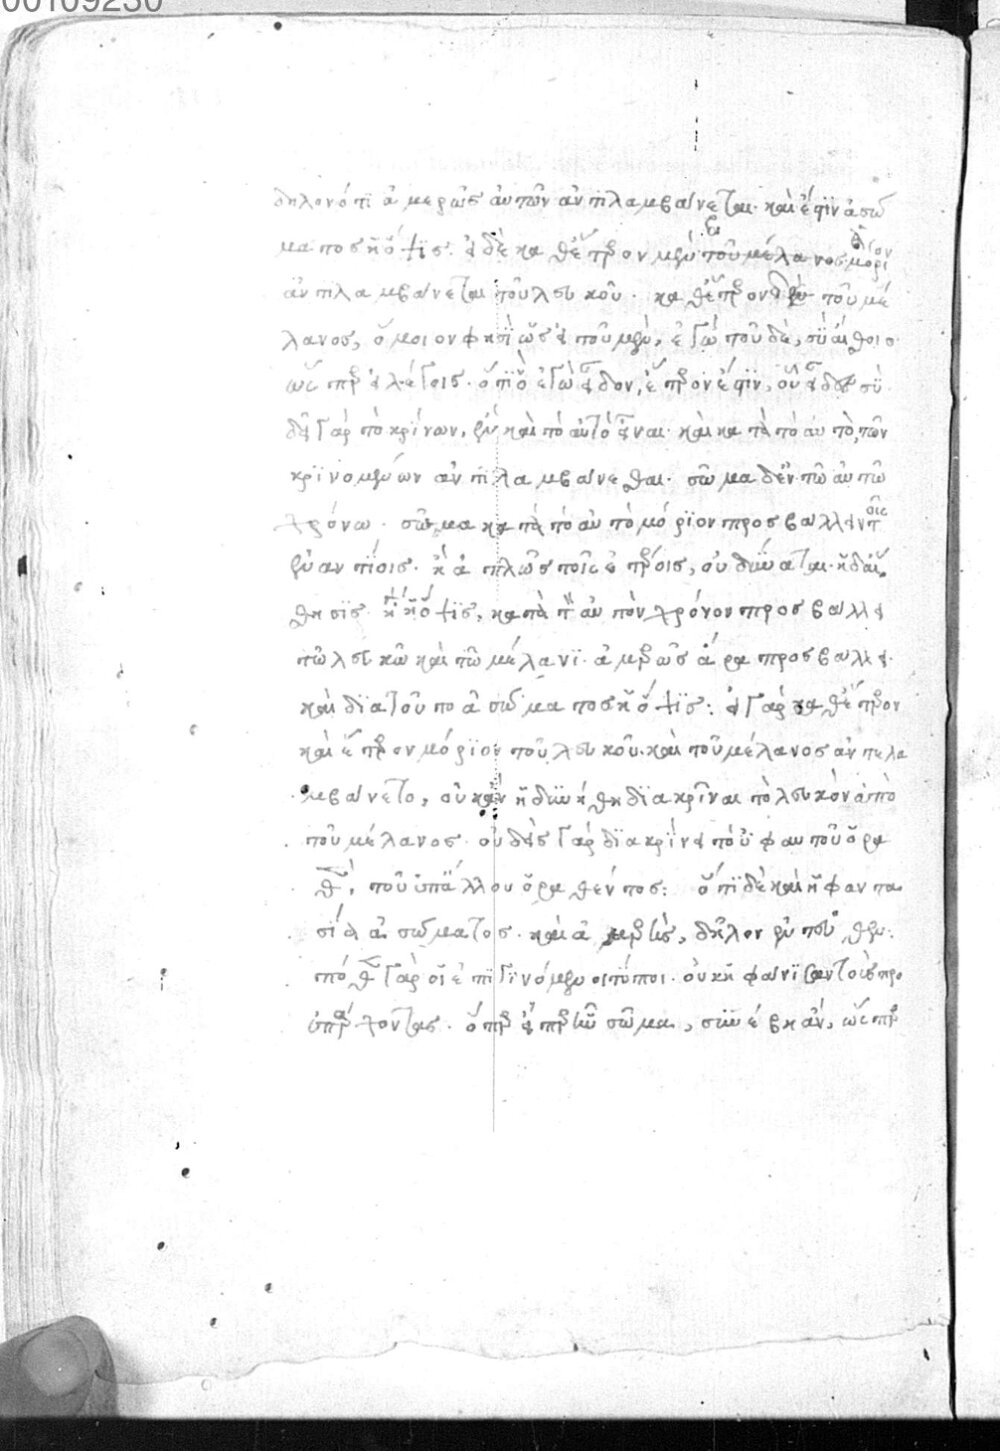 00109230
δηλονότι ἀμερῶς αὐτῶν ἀντιλαμβάνεται· καὶ ἔστιν ἀσώ
ματος ἡ ὄψις· εἰ δὲ καθ' ἕτερον μὲν τοῦ μέλανος μόριον
ἀντιλαμβάνεται τοῦ λευκοῦ· καθ' ἕτερον δὲ τοῦ μέ
λανος, ὅμοιον φησὶ ὡς εἰ τοῦ μὲν, ἐγὼ τοῦ δὲ, σὺ αἴσθοιο·
ὥσπερ εἰ λέγοις· ὅτι ὃ ἐγὼ εἶδον, ἕτερον ἐστὶν, οὗ εἶδες σύ·
δεῖ γὰρ τὸ κρίνων, ἓν καὶ τὸ αὐτὸ εἶναι· καὶ κατὰ τὸ αὐτὸ, τῶν
κρινομένων ἀντιλαμβάνεσθαι· σῶμα δὲ ἐν τῶ αὐτῶ
χρόνω· σῶμα κατὰ τὸ αὐτὸ μόριον προσβάλλειν τοῖς
ἐναντίοις· ἢ ἁπλῶς τοῖς ἑτέροις, οὐ δύναται· ἡ δὲ αἴ
σθησις ἤτοι ἡ ὄψις, κατὰ τὸν αὐτὸν χρόνον προσβάλλει
τῶ λευκῶ καὶ τῶ μέλανι· ἀμερῶς ἄρα προσβάλλει·
καὶ διὰ τοῦτο ἀσώματος ἡ ὄψις: εἰ γὰρ καθ' ἕτερον
καὶ ἕτερον μόριον τοῦ λευκοῦ· καὶ τοῦ μέλανος ἀντελα
μβάνετο, οὐκ ἂν ἠδυνήθη διακρῖναι τὸ λευκὸν ἀπὸ
τοῦ μέλανος· οὐδεὶς γὰρ διακρίνει τὸ ὑφ' αὑτοῦ ὁρα
θὲν, τοῦ ὑπ' ἄλλου ὁραθέντος: ὅτι δὲ καὶ ἡ φαντα
σία ἀσώματος· καὶ ἀμερὴς, δῆλον ἐντεῦθεν:
πόθεν γὰρ οἱ ἐπιγινόμενοι τύποι· οὐκ ἠφάνισαν τοὺς προ
ϋπάρχοντας· ὅπερ εἴπερ ἦν σῶμα, συνέβη ἂν, ὥσπερ